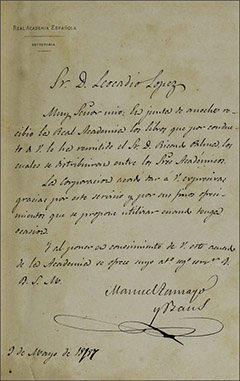 REAL ACADEMIA ESPAÑOLA
SECRETARÍA
Sr. D. Leocadio Lopez
Muy Señor mio: En junta de anoche re-
cibio la Real Academia los libros que por conduc-
to de V. le ha remitido el Sr. D. Ricardo Palma, los
cuales se distribuiran entre los Sres. Academicos.
La Corporacion acordó dar á V. expresivas
gracias por este servicio y por sus finos ofreci-
mientos que se propone utilizar cuando tenga
ocasion.
Y al poner en conocimiento de V. este acuerdo
de la Academia se ofrece suyo
B. S. M.
Manuel Tamayo
y Baus
9 de Mayo de